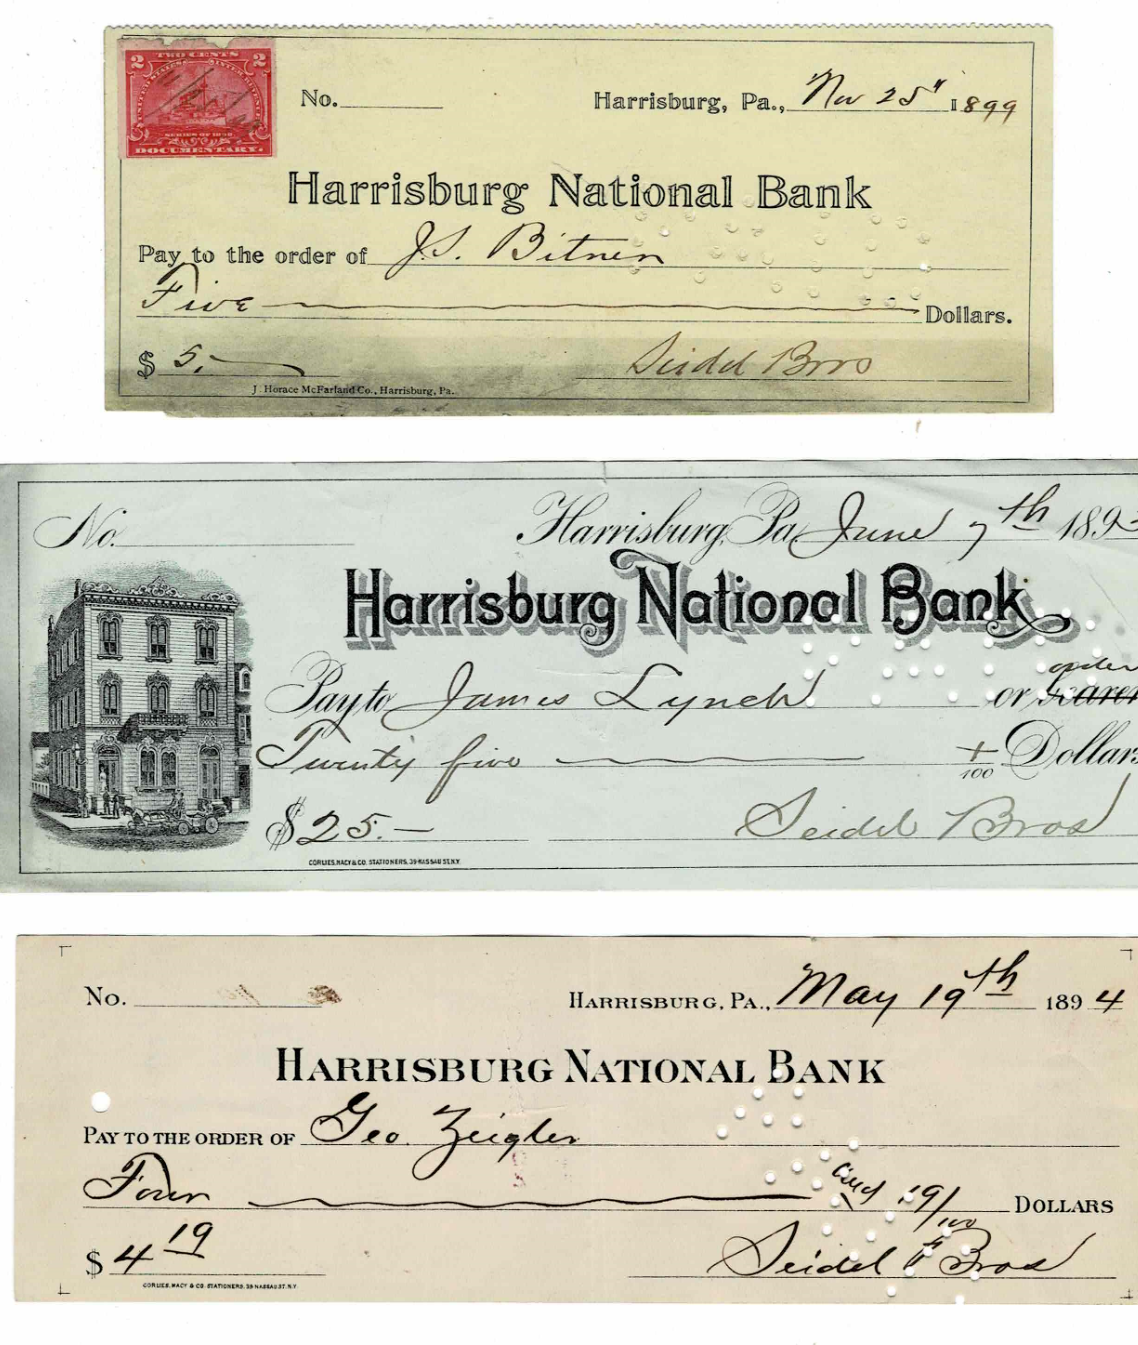 2 TWO CENTS 2
SERIES OF 1898
DOCUMENTARY.
No. Harrisburg, Pa., Nov 25" 1899
Harrisburg National Bank
Pay to the order of J.S. Bitner
Five Dollars.
$ 5.- Seidel Bros
J. Horace McFarland Co., Harrisburg, Pa.
No. Harrisburg, Pa June 7th 189
Harrisburg National Bank
order
Pay to James Lynch or bearer
Twenty five +/100 Dollars
$25.- Seidel Bros
CORLIES, MACY & CO. STATIONERS, 39 NASSAU ST. N.Y.
No. HARRISBURG, PA., May 19th 1894
HARRISBURG NATIONAL BANK
PAY TO THE ORDER OF Geo. Zeigler
Four and 19/100 DOLLARS
$ 4 19 Seidel Bros
CORLIES, MACY & CO. STATIONERS, 39 NASSAU ST. N.Y.